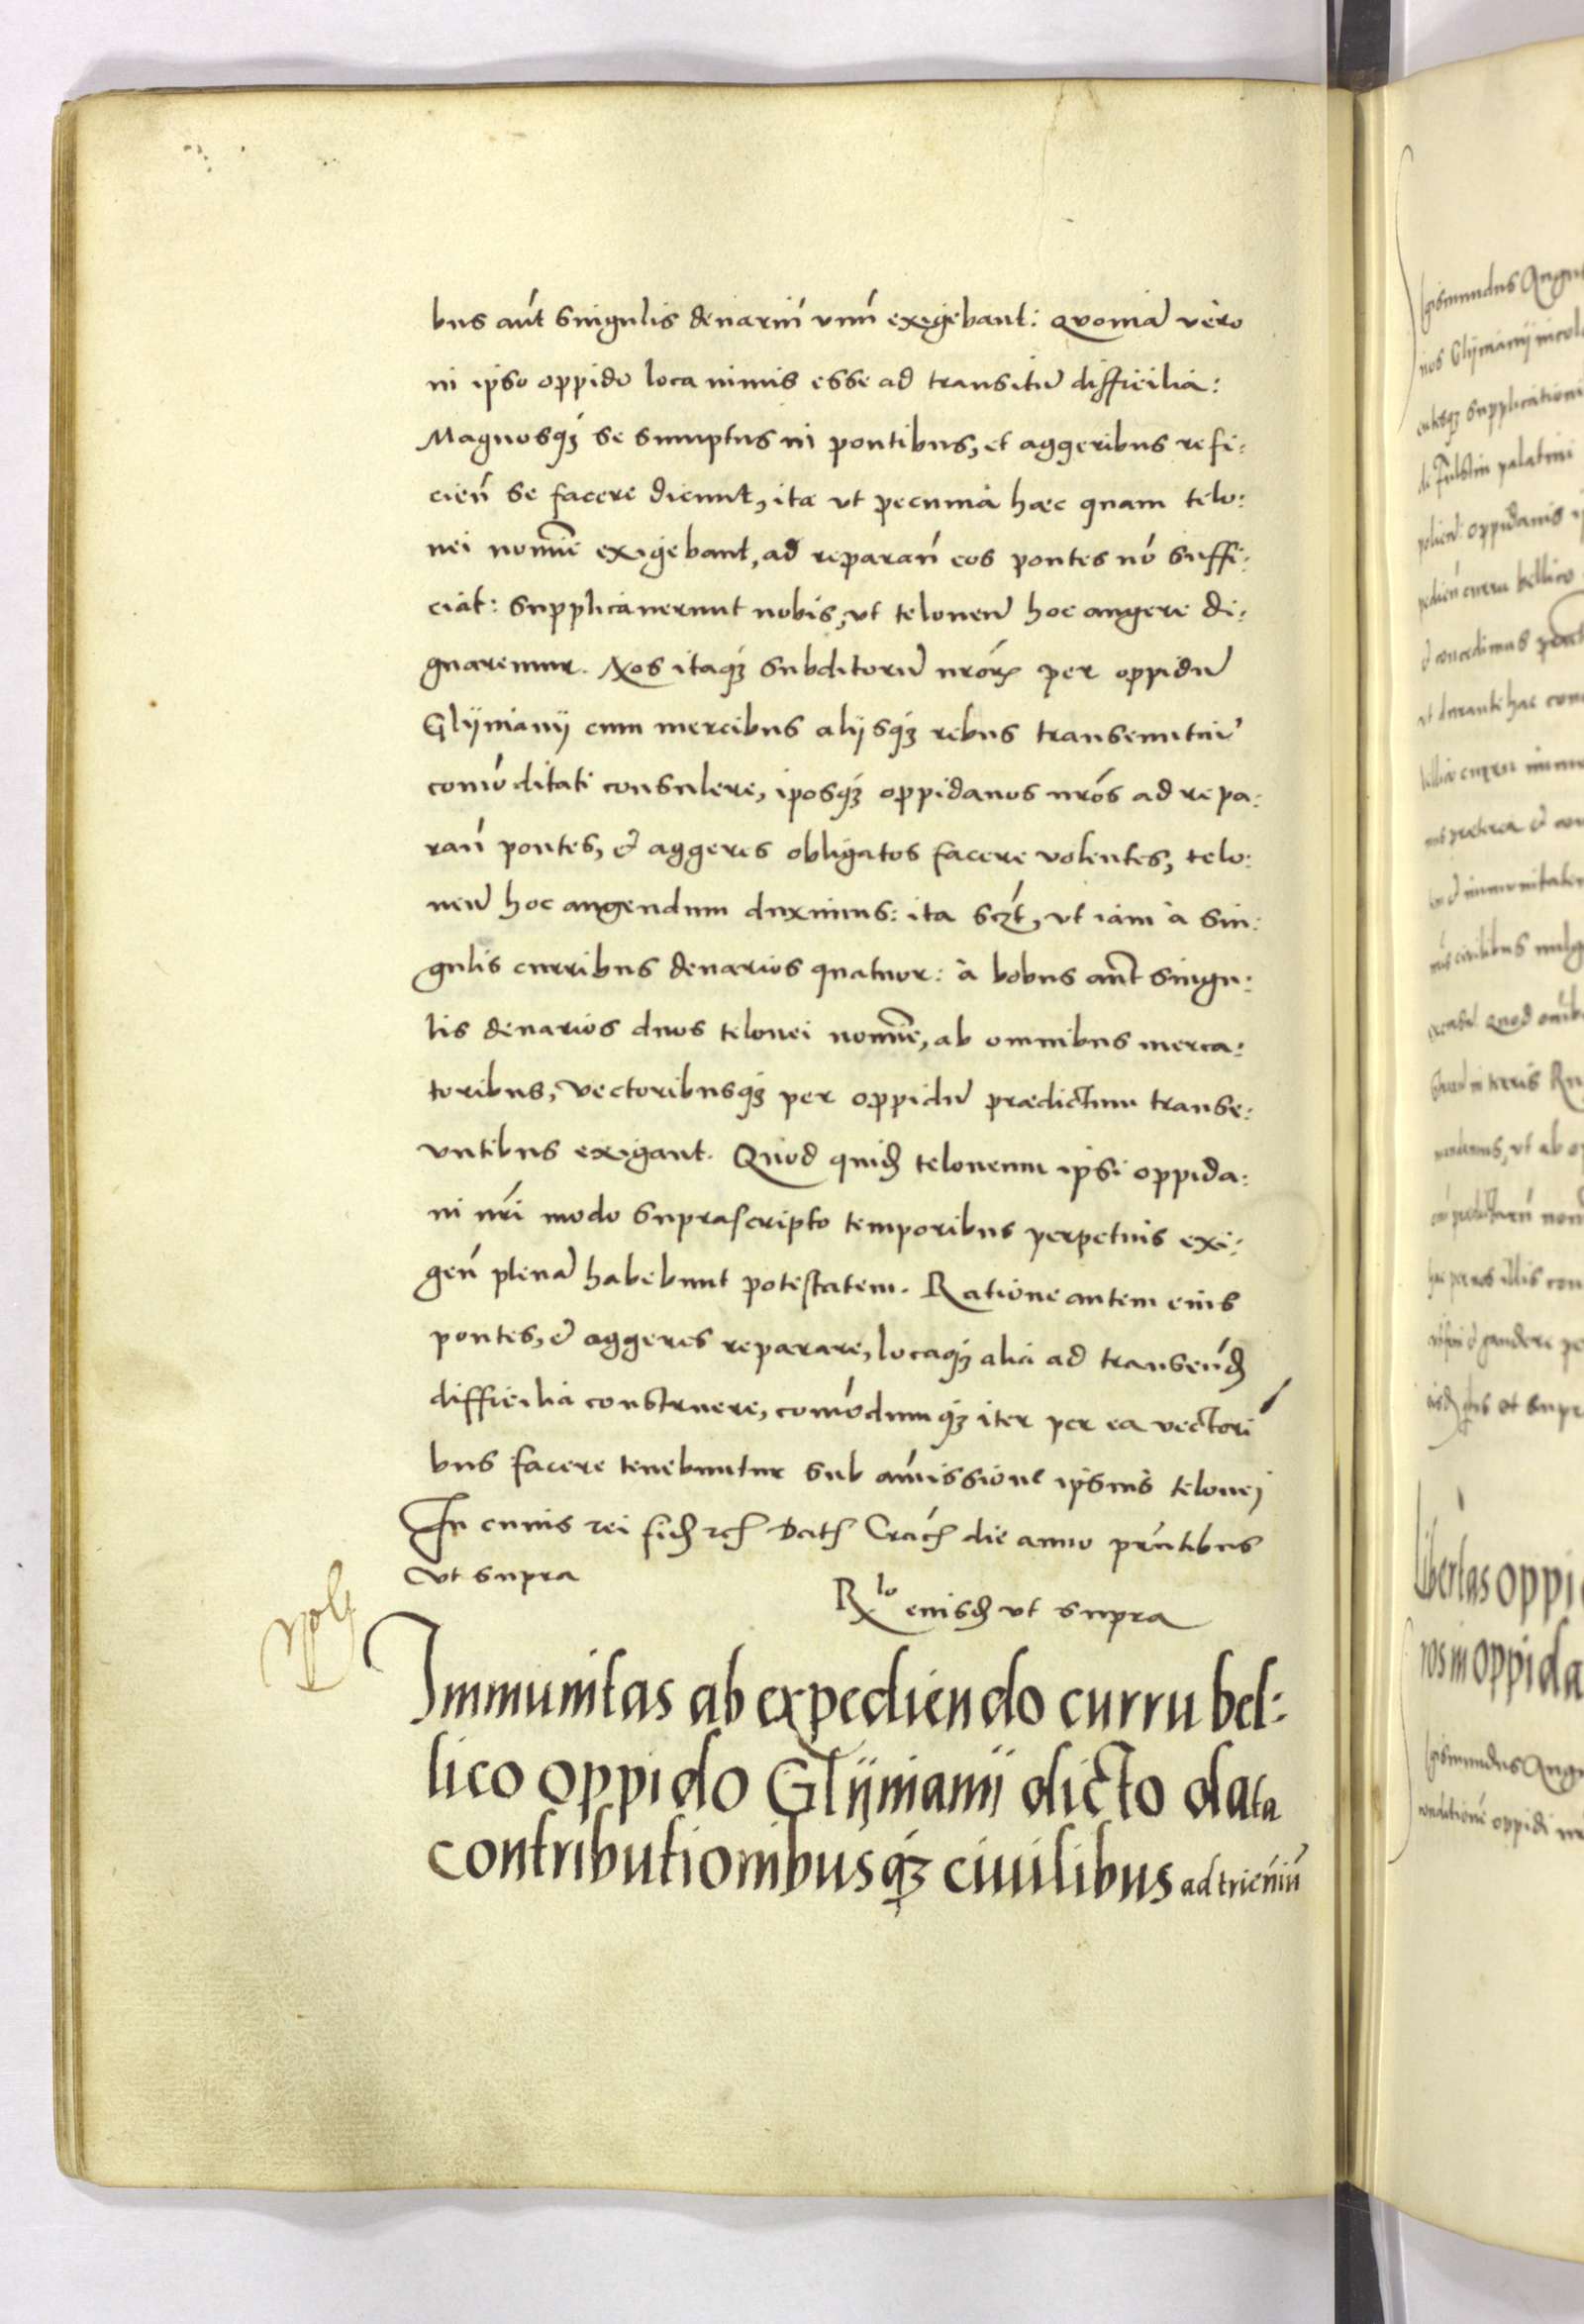 bus aut́ singulis denariū vnū exigebant: Quoniā vero
in ipso oppido loca nimis esse ad transitū difficilia:
Magnosq́ʒ se sumptus in pontibus, et aggeribus refi:
cień se facere dicunt, ita vt pecunia haec quam telo:
nei nomīe exigebant, ad reparań eos pontes nō suffi:
ciat: supplicauerunt nobis, vt teloneū hoc augere di:
gnaremur. Nos itaq́ʒ subditorū nrōrꝝ per oppidū
Glijnianij cum mercibus alijsq́ʒ rebus transeuntiū
com̄oditati consulere, iposq́ʒ oppidanos nrōs ad repa:
rań pontes, et aggeres obligatos facere volentes, telo:
neū hoc augendum duximus: ita sczt́, vt iam à sin:
gulis curribus denarios quatuor: à bobus aut̄ singu:
lis denarios duos telonei nomīe, ab omnibus merca:
toribus, vectoribusq́ʒ per oppidū praedictum transe:
untibus exigant. Quod quid teloneum ipsi oppida:
ni nrī modo suprascripto temporibus perpetuis exi:
geń plenā habebunt potestatem. Ratione autem eius
pontes, et aggeres reparare, locaq́ʒ alia ad transeūd
difficilia construere, com̄odumq́ʒ iter per ea vectori
bus facere tenebuntur sub amissione ipsius telonej
In cuius rei fid etc Dat Crać die anno prn̄tibus
vt supra
R<sup>lo</sup> eiusd vt supra
Immunitas ab expediendo curru bel:
lico oppido Glijnianij dicto data
contributionibusq́ʒ ciuilibus ad trieniū